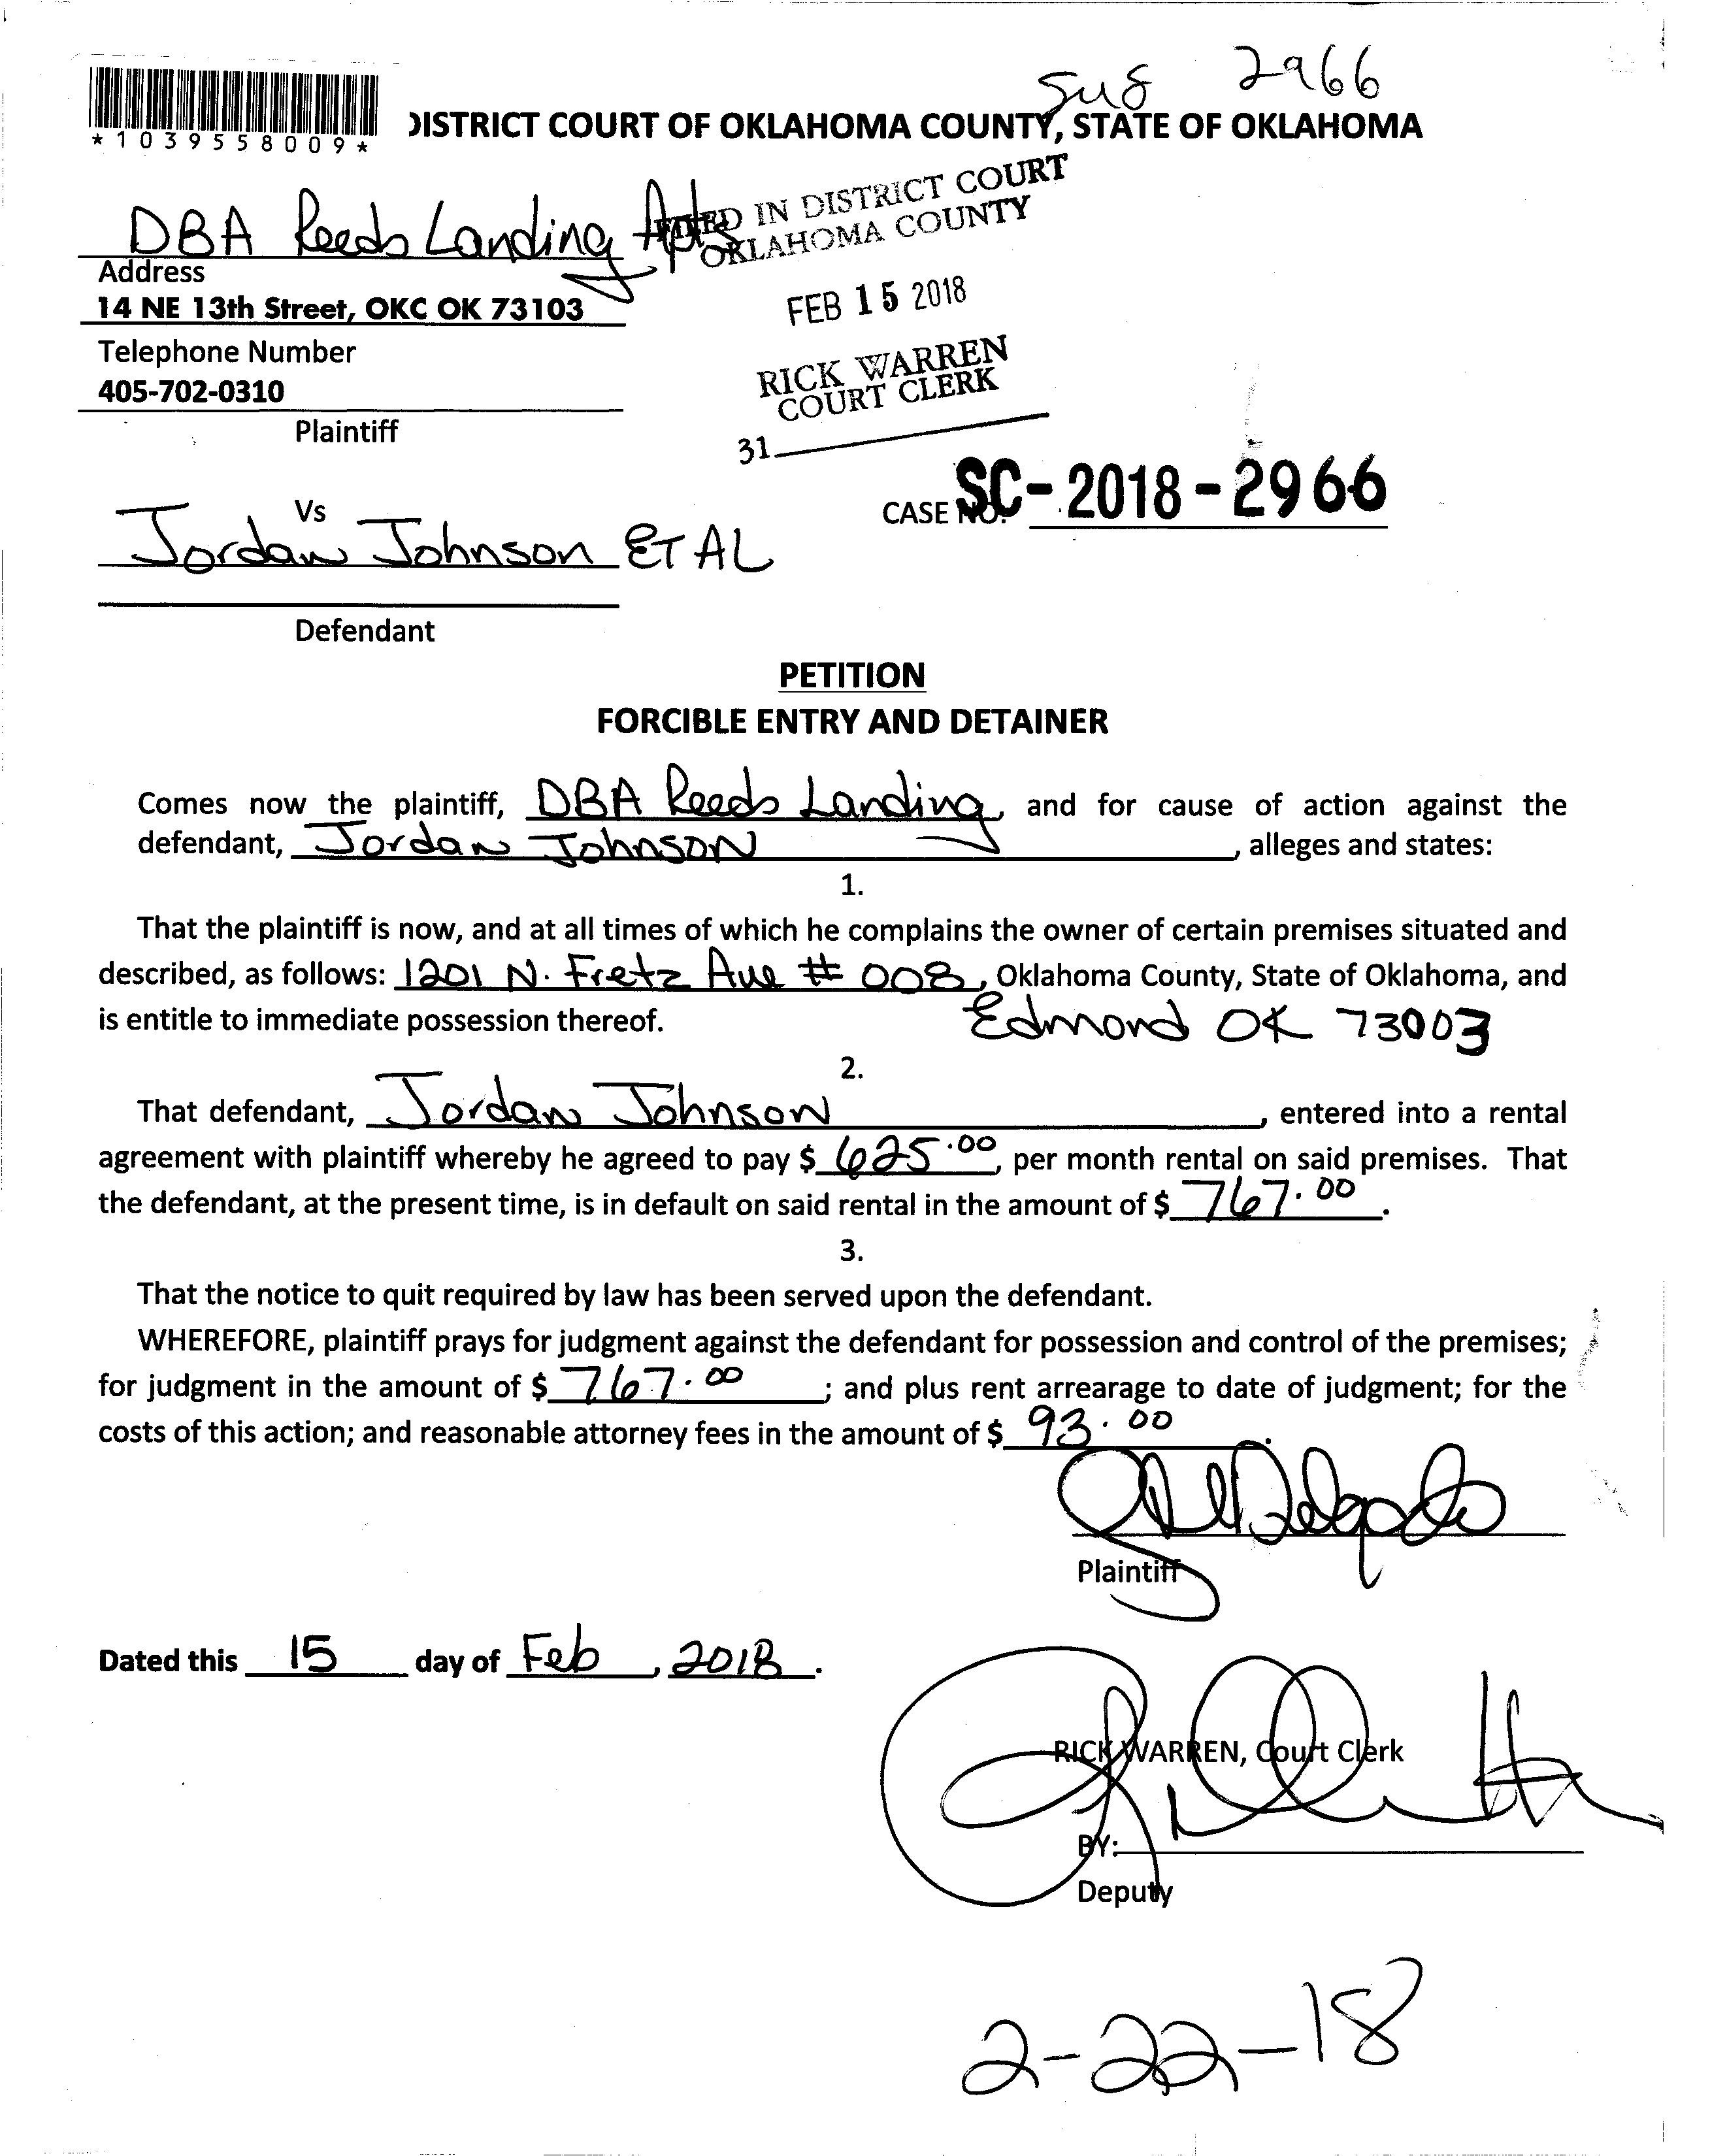 2966
*1039558009*
DISTRICT COURT OF OKLAHOMA COUNTY, STATE OF OKLAHOMA
DBA Reeds Landing Apts
FILED IN DISTRICT COURT
OKLAHOMA COUNTY
Address
14 NE 13th Street, OKC OK 73103
FEB 15 2018
Telephone Number
405-702-0310
RICK WARREN
COURT CLERK
Plaintiff
31
CASE NO. SC-2018-2966
Vs
Jordan Johnson ET AL
Defendant
PETITION
FORCIBLE ENTRY AND DETAINER
Comes now the plaintiff, DBA Reeds Landing, and for cause of action against the
defendant, Jordan Johnson, alleges and states:
1.
That the plaintiff is now, and at all times of which he complains the owner of certain premises situated and
described, as follows: 1201 N. Fretz Ave # 008, Oklahoma County, State of Oklahoma, and
is entitle to immediate possession thereof. Edmond OK 73003
2.
That defendant, Jordan Johnson, entered into a rental
agreement with plaintiff whereby he agreed to pay $ 625.00, per month rental on said premises. That
the defendant, at the present time, is in default on said rental in the amount of $ 767.00.
3.
That the notice to quit required by law has been served upon the defendant.
WHEREFORE, plaintiff prays for judgment against the defendant for possession and control of the premises;
for judgment in the amount of $ 767.00; and plus rent arrearage to date of judgment; for the
costs of this action; and reasonable attorney fees in the amount of $ 93.00.
Delgado
Plaintiff
Dated this 15 day of Feb, 2018.
RICK WARREN, Court Clerk
BY:
Deputy
2-22-18